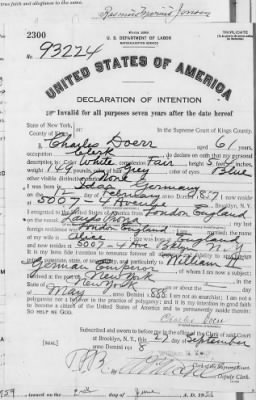 true faith and allegiance to the same.
TRIPLICATE
2300
U. S. DEPARTMENT OF LABOR
NATURALIZATION SERVICE
No. 93224
UNITED STATES OF AMERICA
DECLARATION OF INTENTION
Invalid for all purposes seven years after the date hereof
State of New York,
County of Kings
In the Supreme Court of Kings County.
I, Charles Doerr, aged 61 years,
occupation Clerk, do declare on oath that my personal
description is: Color White, complexion Fair, height 5 feet inches,
weight 149 pounds, color of hair Grey, color of eyes Blue
other visible distinctive marks None
I was born in Germany
on the day of February, anno Domini 1857; I now reside
at 5007-4 Avenue, Brooklyn, N. Y.
I emigrated to the United States of America from London England
on the vessel; my last
foreign residence was London England
of my wife is Alice; she was born in England
and now resides at 5007-4 Ave Bklyn N.Y.
It is my bona fide intention to renounce forever all allegiance and fidelity to any foreign
prince, potentate, state, or sovereignty, and particularly to William II
German Emperor, of whom I am now a subject;
I arrived at the port of New York, in the
State of New York, on or about the day
of May, anno Domini 1888; I am not an anarchist; I am not a
polygamist nor a believer in the practice of polygamy; and it is my intention in good faith
to become a citizen of the United States of America and to permanently reside therein:
SO HELP ME GOD.
Subscribed and sworn to before me in the office of the Clerk of said Court
at Brooklyn, N. Y., this 27 day of September
anno Domini 1918
[SEAL]
Deputy Clerk.